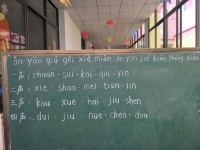 àn yāo qiú gěi xià miàn de yīn jié biāo shēng diào
一声 / chuan · sui · kai · qiu · yin
二声 / xie · shao · mei · tian · lin
三声 / kou · xue · hai · jiu · shen
四声 / dui · jiu · nüe · chen · dou